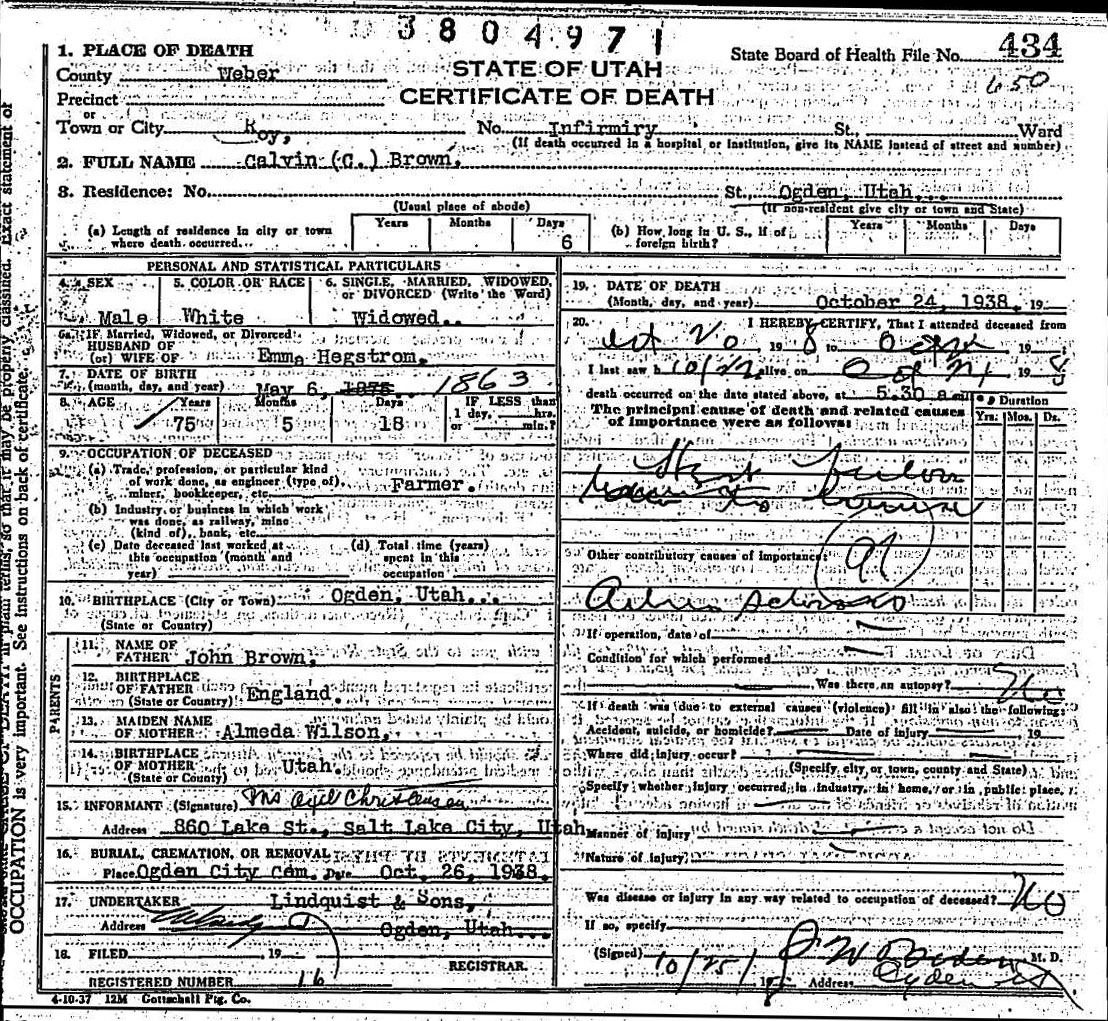 3804971
State Board of Health File No. 434
650
STATE OF UTAH
CERTIFICATE OF DEATH
1. PLACE OF DEATH
County Weber
Precinct
or
Town or City Roy, No. Infirmiry St., Ward
(If death occurred in a hospital or institution, give its NAME instead of street and number)
2. FULL NAME Calvin (C.) Brown.
3. Residence: No. St., Ogden, Utah...
(Usual place of abode) (If non-resident give city or town and State)
(a) Length of residence in city or town where death occurred... Years Months Days 6
(b) How long in U. S., if of foreign birth? Years Months Days
PERSONAL AND STATISTICAL PARTICULARS
4. SEX Male
5. COLOR OR RACE White
6. SINGLE, MARRIED, WIDOWED, or DIVORCED (Write the Word) Widowed..
6a. If Married, Widowed, or Divorced
HUSBAND OF
(or) WIFE OF Emma Hegstrom.
7. DATE OF BIRTH
(month, day, and year) May 6, 1875 1863
8. AGE Years 75 Months 5 Days 18 IF LESS than 1 day, hrs. or min.?
9. OCCUPATION OF DECEASED
(a) Trade, profession, or particular kind
of work done, as engineer (type of), Farmer.
miner, bookkeeper, etc.
(b) Industry or business in which work
was done, as railway, mine
(kind of), bank, etc.
(c) Date deceased last worked at
this occupation (month and
year)
(d) Total time (years)
spent in this
occupation
10. BIRTHPLACE (City or Town) Ogden, Utah...
(State or Country)
PARENTS
11. NAME OF
FATHER John Brown.
12. BIRTHPLACE
OF FATHER England.
(State or Country)
13. MAIDEN NAME
OF MOTHER Almeda Wilson.
14. BIRTHPLACE
OF MOTHER Utah.
(State or Country)
15. INFORMANT (Signature) Mrs Christensen
Address 860 Lake St., Salt Lake City, Utah
16. BURIAL, CREMATION, OR REMOVAL
Place Ogden City Cem. Date Oct. 26, 1938.
17. UNDERTAKER Lindquist & Sons,
Address Ogden, Utah...
18. FILED 19
REGISTRAR.
REGISTERED NUMBER 16
4-10-37 12M Gottschall Ptg. Co.
19. DATE OF DEATH
(Month, day, and year) October 24, 1938. 19
20. I HEREBY CERTIFY, That I attended deceased from
19 8 to 19 8
I last saw h 10/22 alive on Oct 19 8
death occurred on the date stated above, at 5.30 a m
The principal cause of death and related causes
of importance were as follows:
Duration
Yrs. Mos. Ds.
Heart Failure
Other contributory causes of importance:
Arterio Sclerosis
If operation, date of
Condition for which performed
Was there an autopsy? No
If death was due to external causes (violence) fill in also the following:
Accident, suicide, or homicide? Date of injury 19
Where did injury occur?
(Specify city or town, county and State)
Specify whether injury occurred in industry, in home, or in public place,
Manner of injury
Nature of injury
Was disease or injury in any way related to occupation of deceased? No
If so, specify
(Signed) M. D.
10/25/ 19 Address Ogden
OCCUPATION is very important. See instructions on back of certificate.